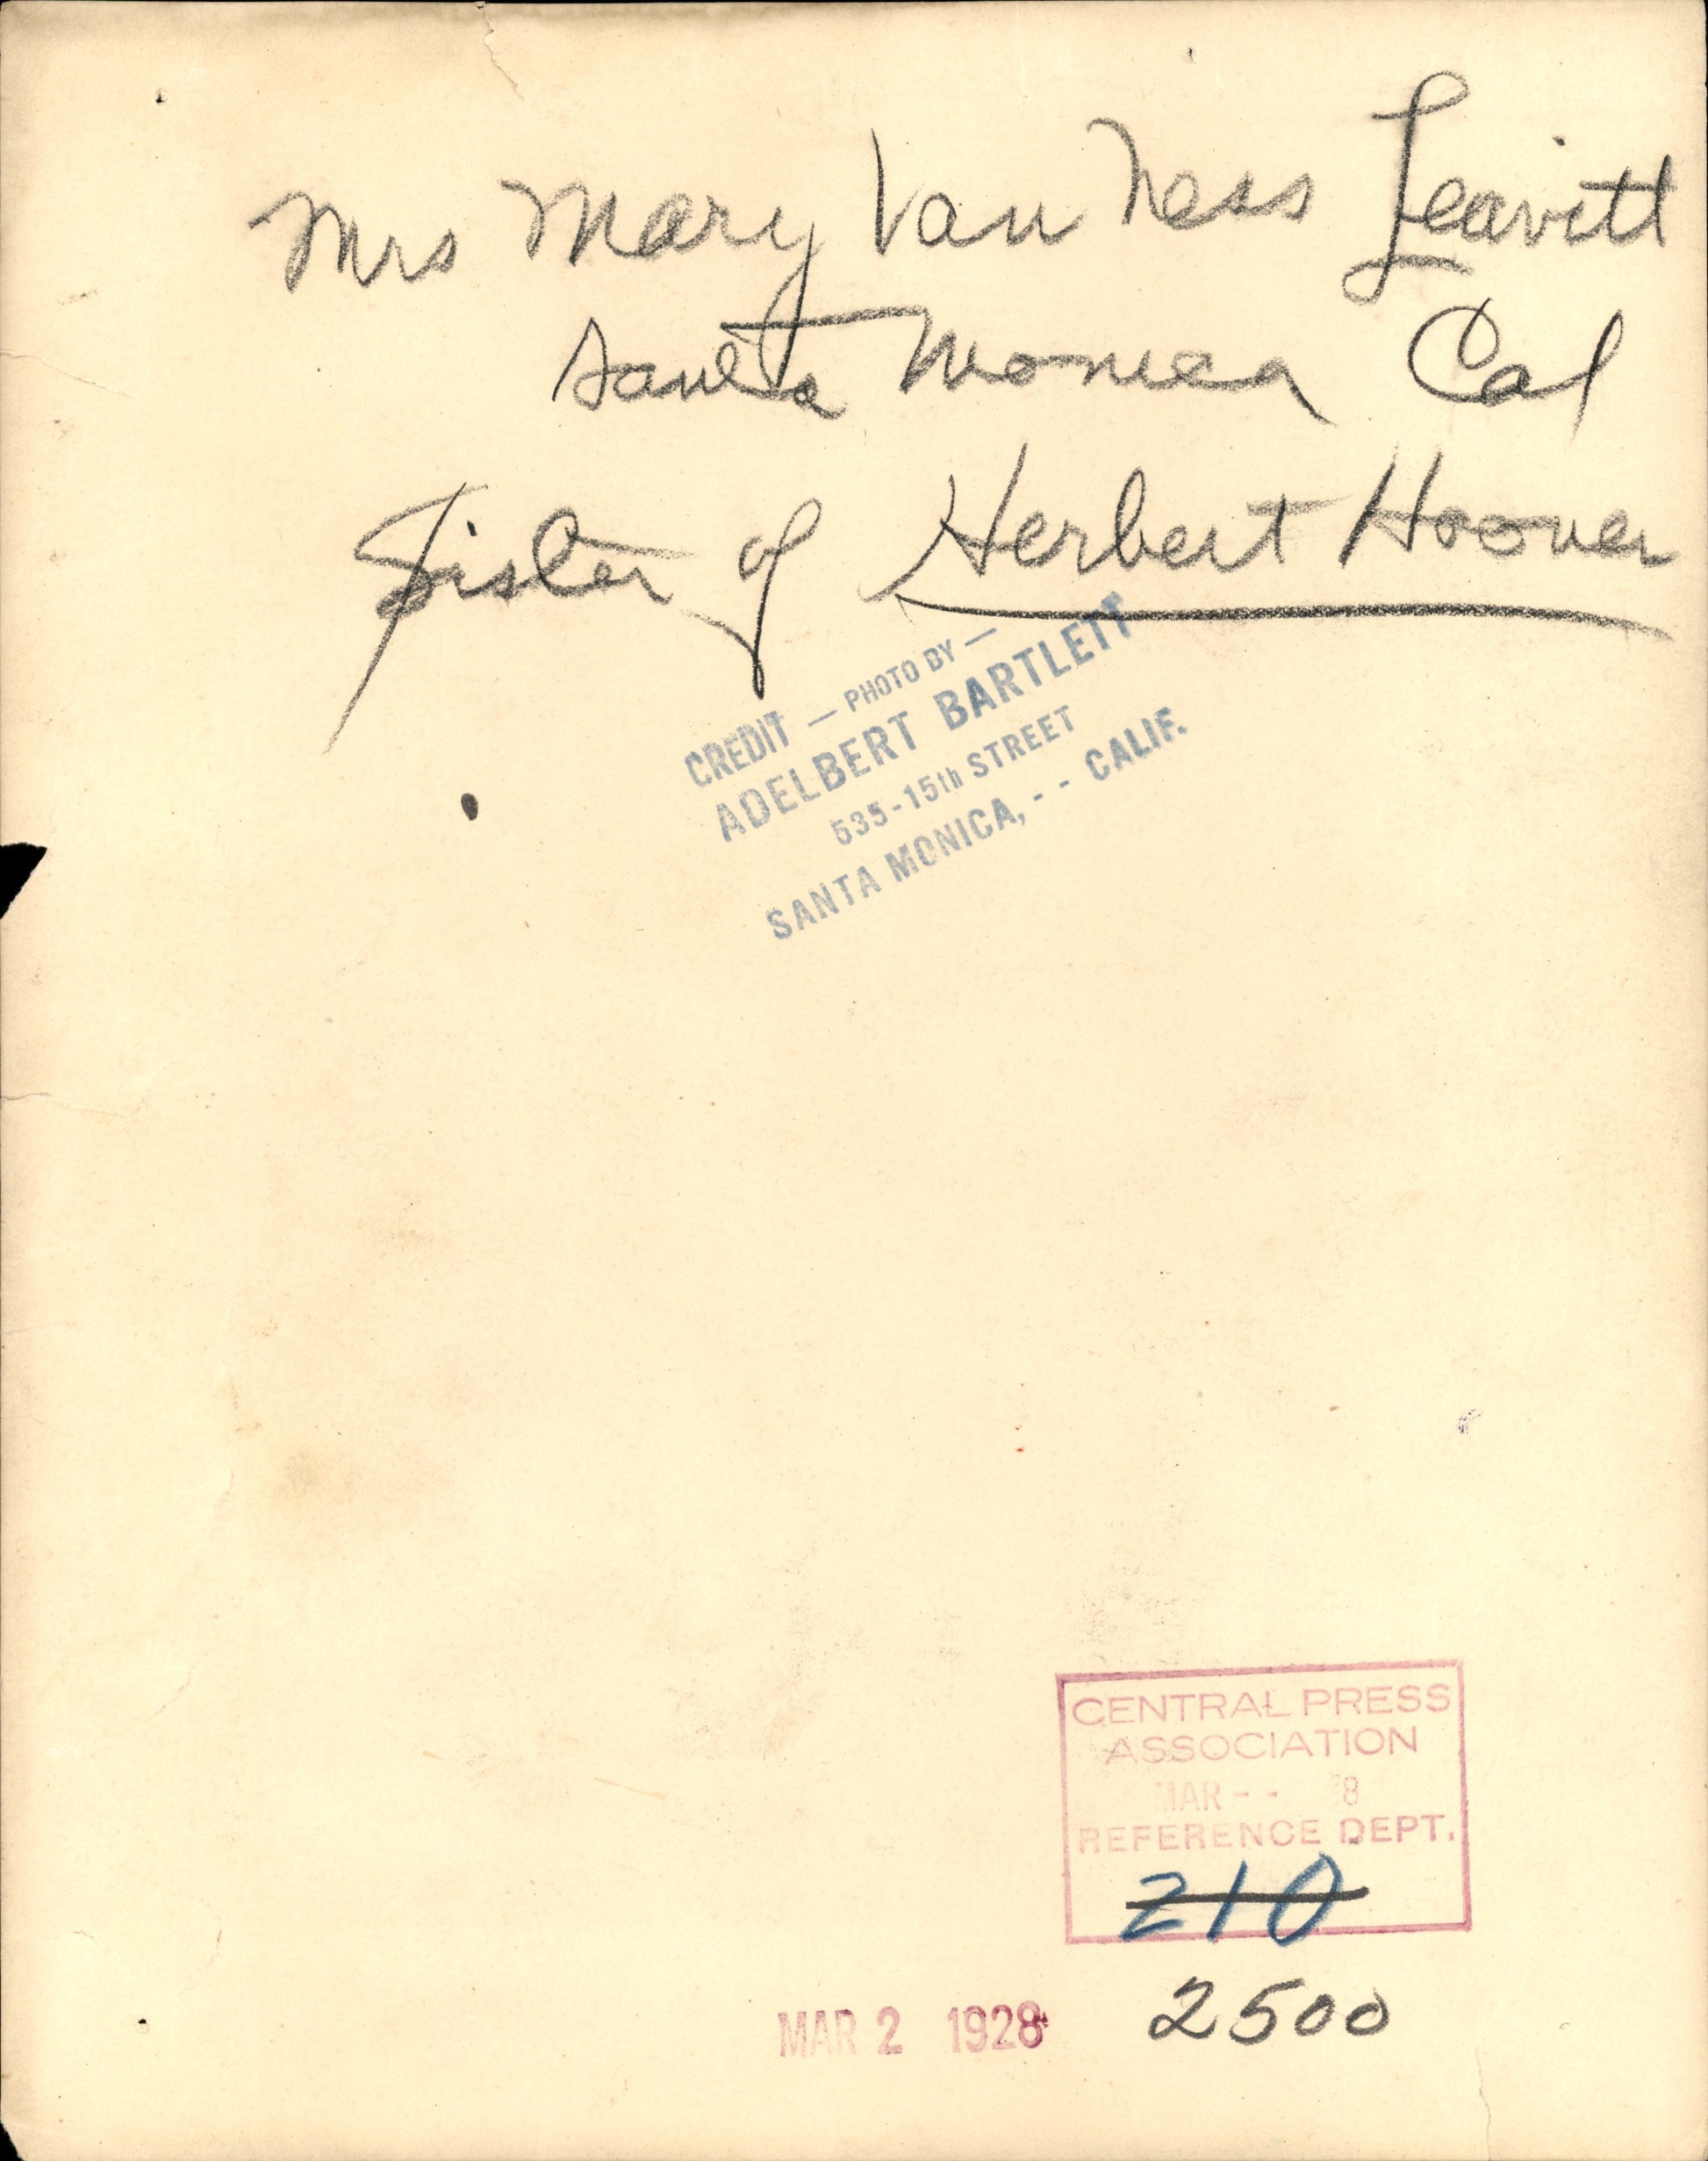 Mrs Mary Van Ness Leavitt
Santa Monica Cal
Sister of Herbert Hoover
CREDIT — PHOTO BY —
ADELBERT BARTLETT
535-15th STREET
SANTA MONICA, - - CALIF.
CENTRAL PRESS
ASSOCIATION
MAR - - 8
REFERENCE DEPT.
210
2500
MAR 2 1928